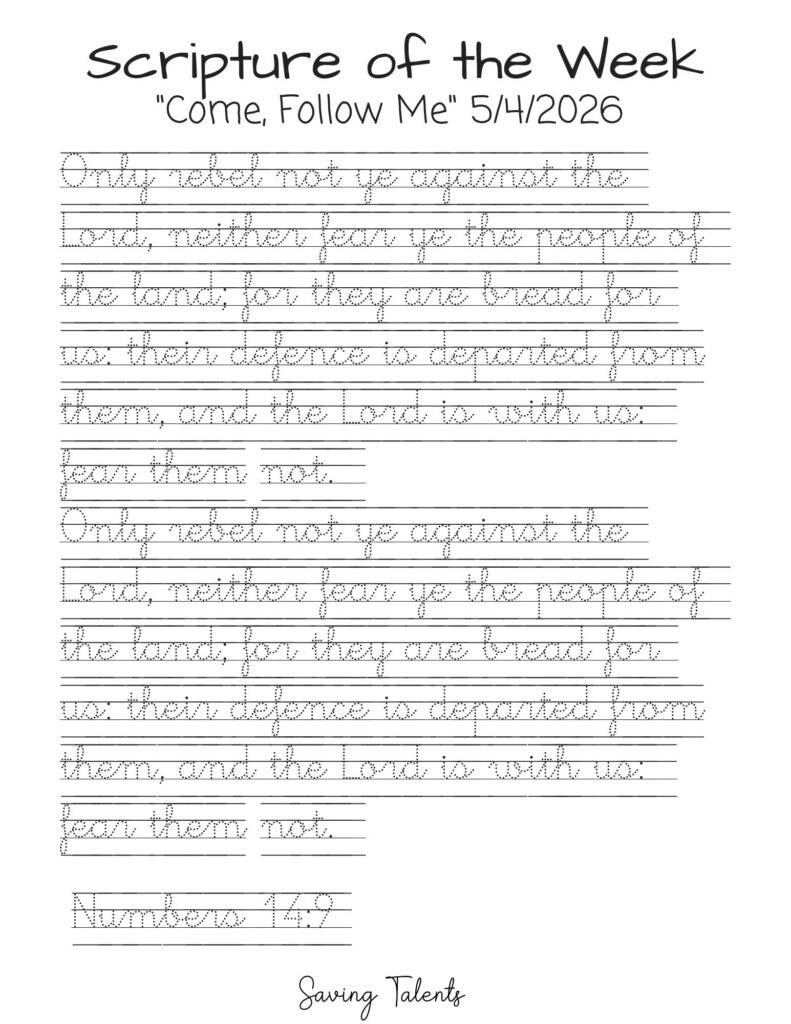 Scripture of the Week
"Come, Follow Me" 5/4/2026
Only rebel not ye against the
Lord, neither fear ye the people of
the land; for they are bread for
us: their defence is departed from
them, and the Lord is with us:
fear them not.
Only rebel not ye against the
Lord, neither fear ye the people of
the land; for they are bread for
us: their defence is departed from
them, and the Lord is with us:
fear them not.
Numbers 14:9
Saving Talents